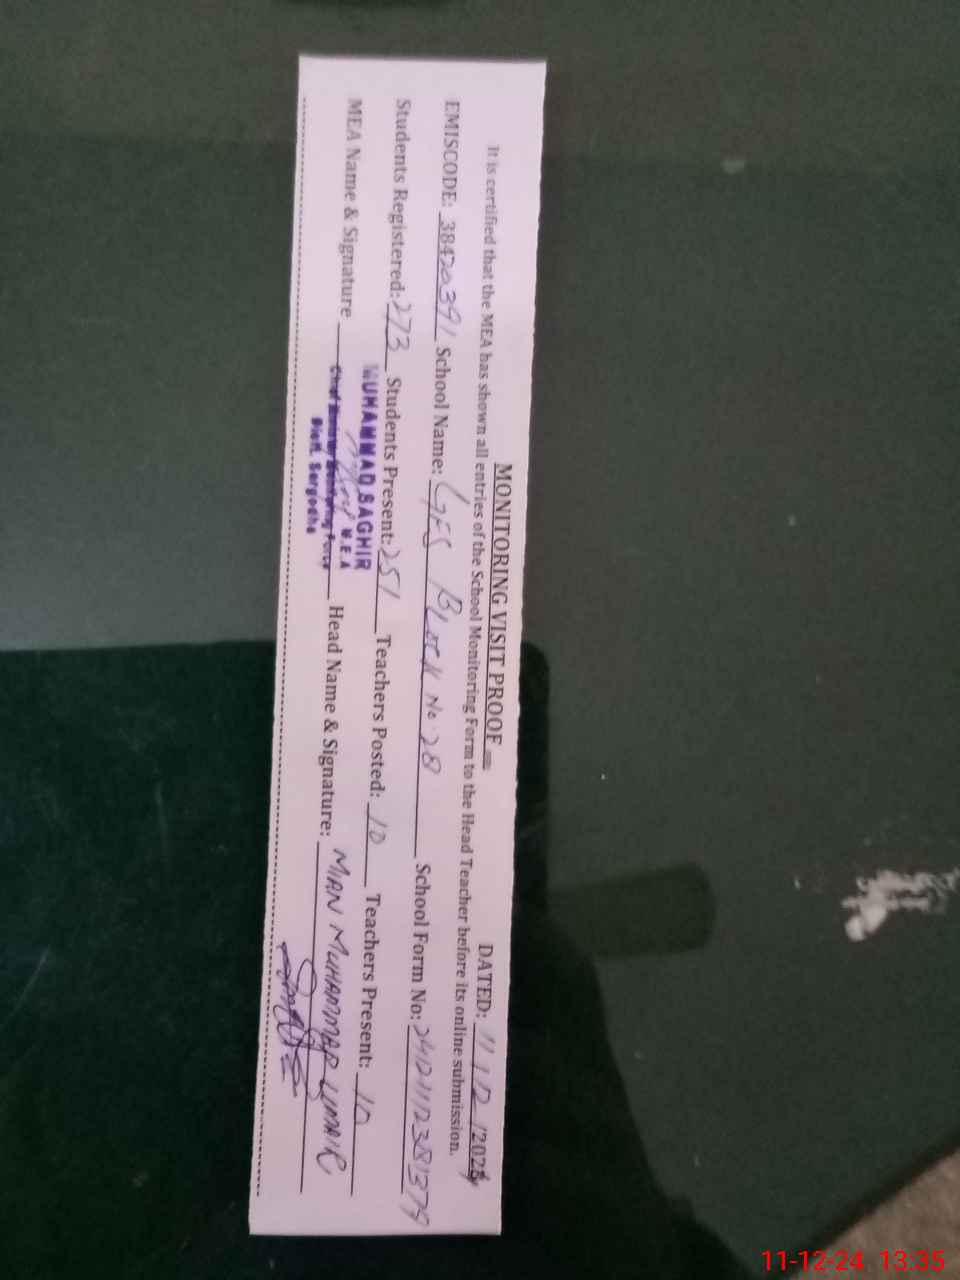 MONITORING VISIT PROOF DATED: 11/12/2024
It is certified that the MEA has shown all entries of the School Monitoring Form to the Head Teacher before its online submission.
EMISCODE: 38420391 School Name: GES Block No 28 School Form No:
Students Registered: 273 Students Present: 251 Teachers Posted: 10 Teachers Present: 10
MUHAMMAD SAGHIR
M.E.A
MEA Name & Signature Head Name & Signature: MIAN MUHAMMAD UMAIR
Chief Minister Monitoring Force
Distt. Sargodha
11-12-24 13:35